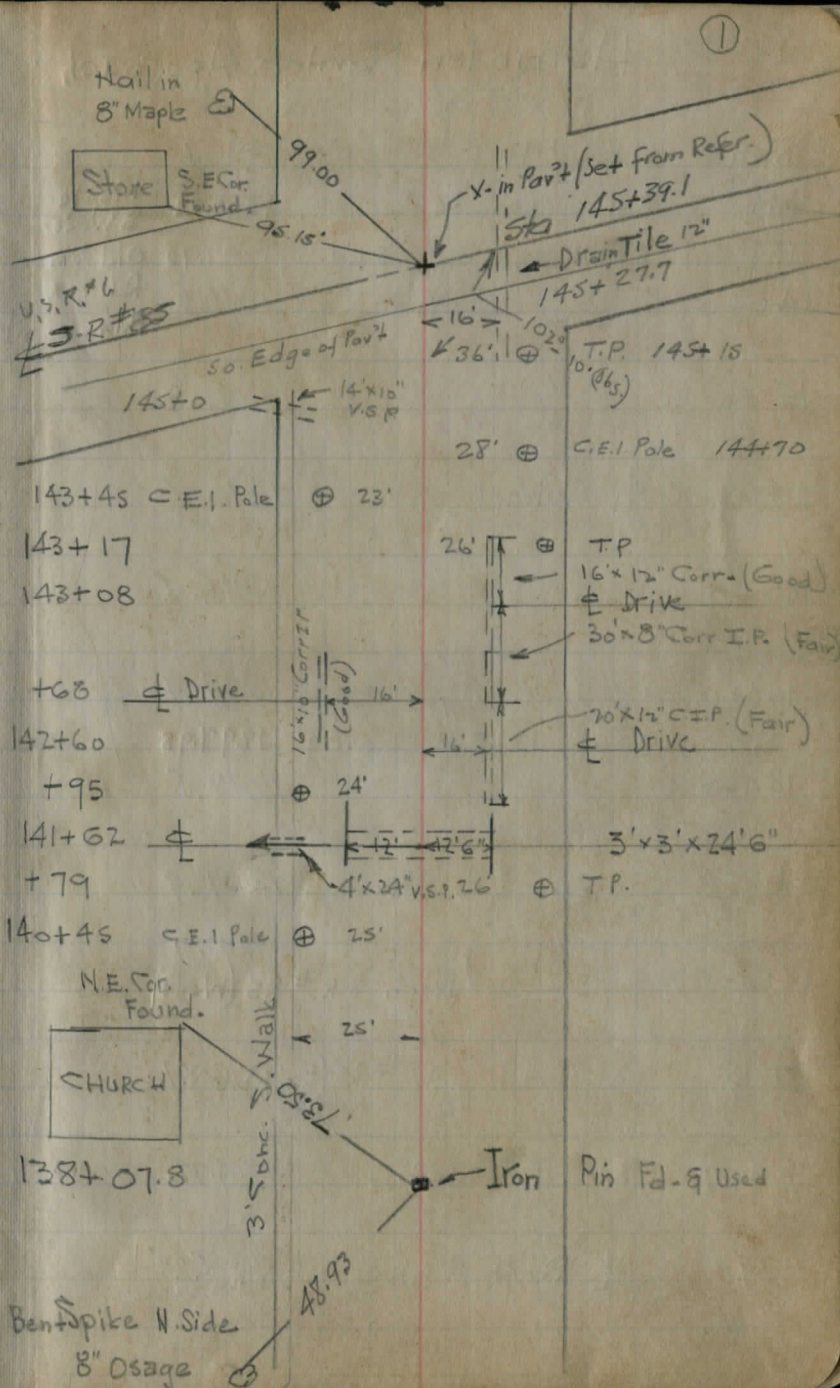 ①
Nail in
8" Maple
99.00
Store
S.E Cor.
Found.
95.15'
X-in Pav't (Set From Refer.)
Sta 145+39.1
Drain Tile 12"
145+27.7
U.S.R.#6
S.R #85
So. Edge of Pav't
16'
102°
36'
T.P. 145+15
145+0
14'x10"
V.S.P
28'
C.E.I Pole 144+70
143+45 C.E.I. Pole
23'
143+17
26'
T.P
16'x12" Corr. (Good)
143+08
℄ Drive
30'x8" Corr I.P. (Fair)
16'x10" Corr I.P
(Good)
+68 ℄ Drive
16'
20'x12" C.I.P. (Fair)
142+60
16'
℄ Drive
+95
24'
141+62 ℄
12'
12'6"
3'x3'x24'6"
+79
4'x24" V.S.P.
26'
T.P.
140+45 C.E.I Pole
25'
N.E. Cor.
Found.
25'
CHURCH
73.50
3' Conc. S. Walk
138+07.8
Iron Pin Fd. & Used
48.93
Bent Spike N. Side
8" Osage